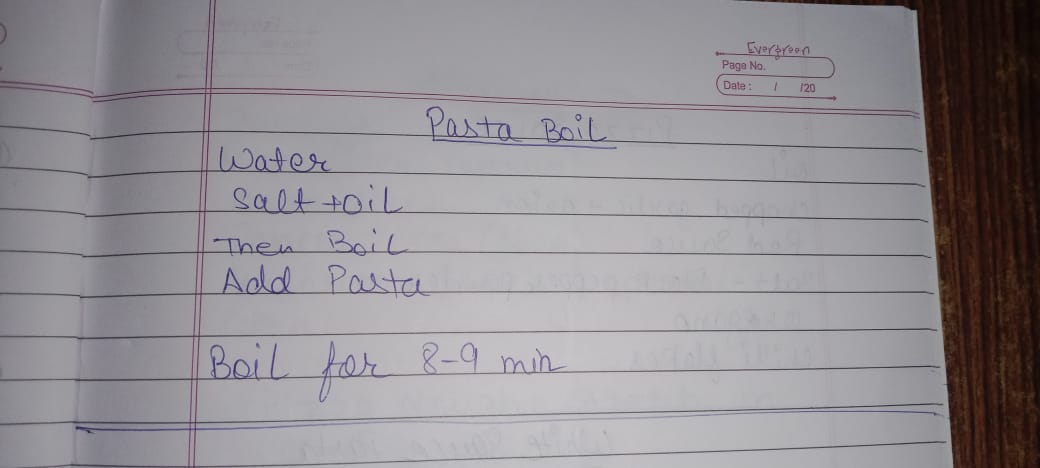 Evergreen
Page No.
Date : / /20
Pasta Boil
Water
Salt + oil
Then Boil
Add Pasta
Boil for 8-9 min